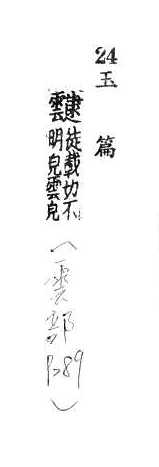 24玉篇
靆徒載切不
雲明皃雲皃
(雲部
P.89)